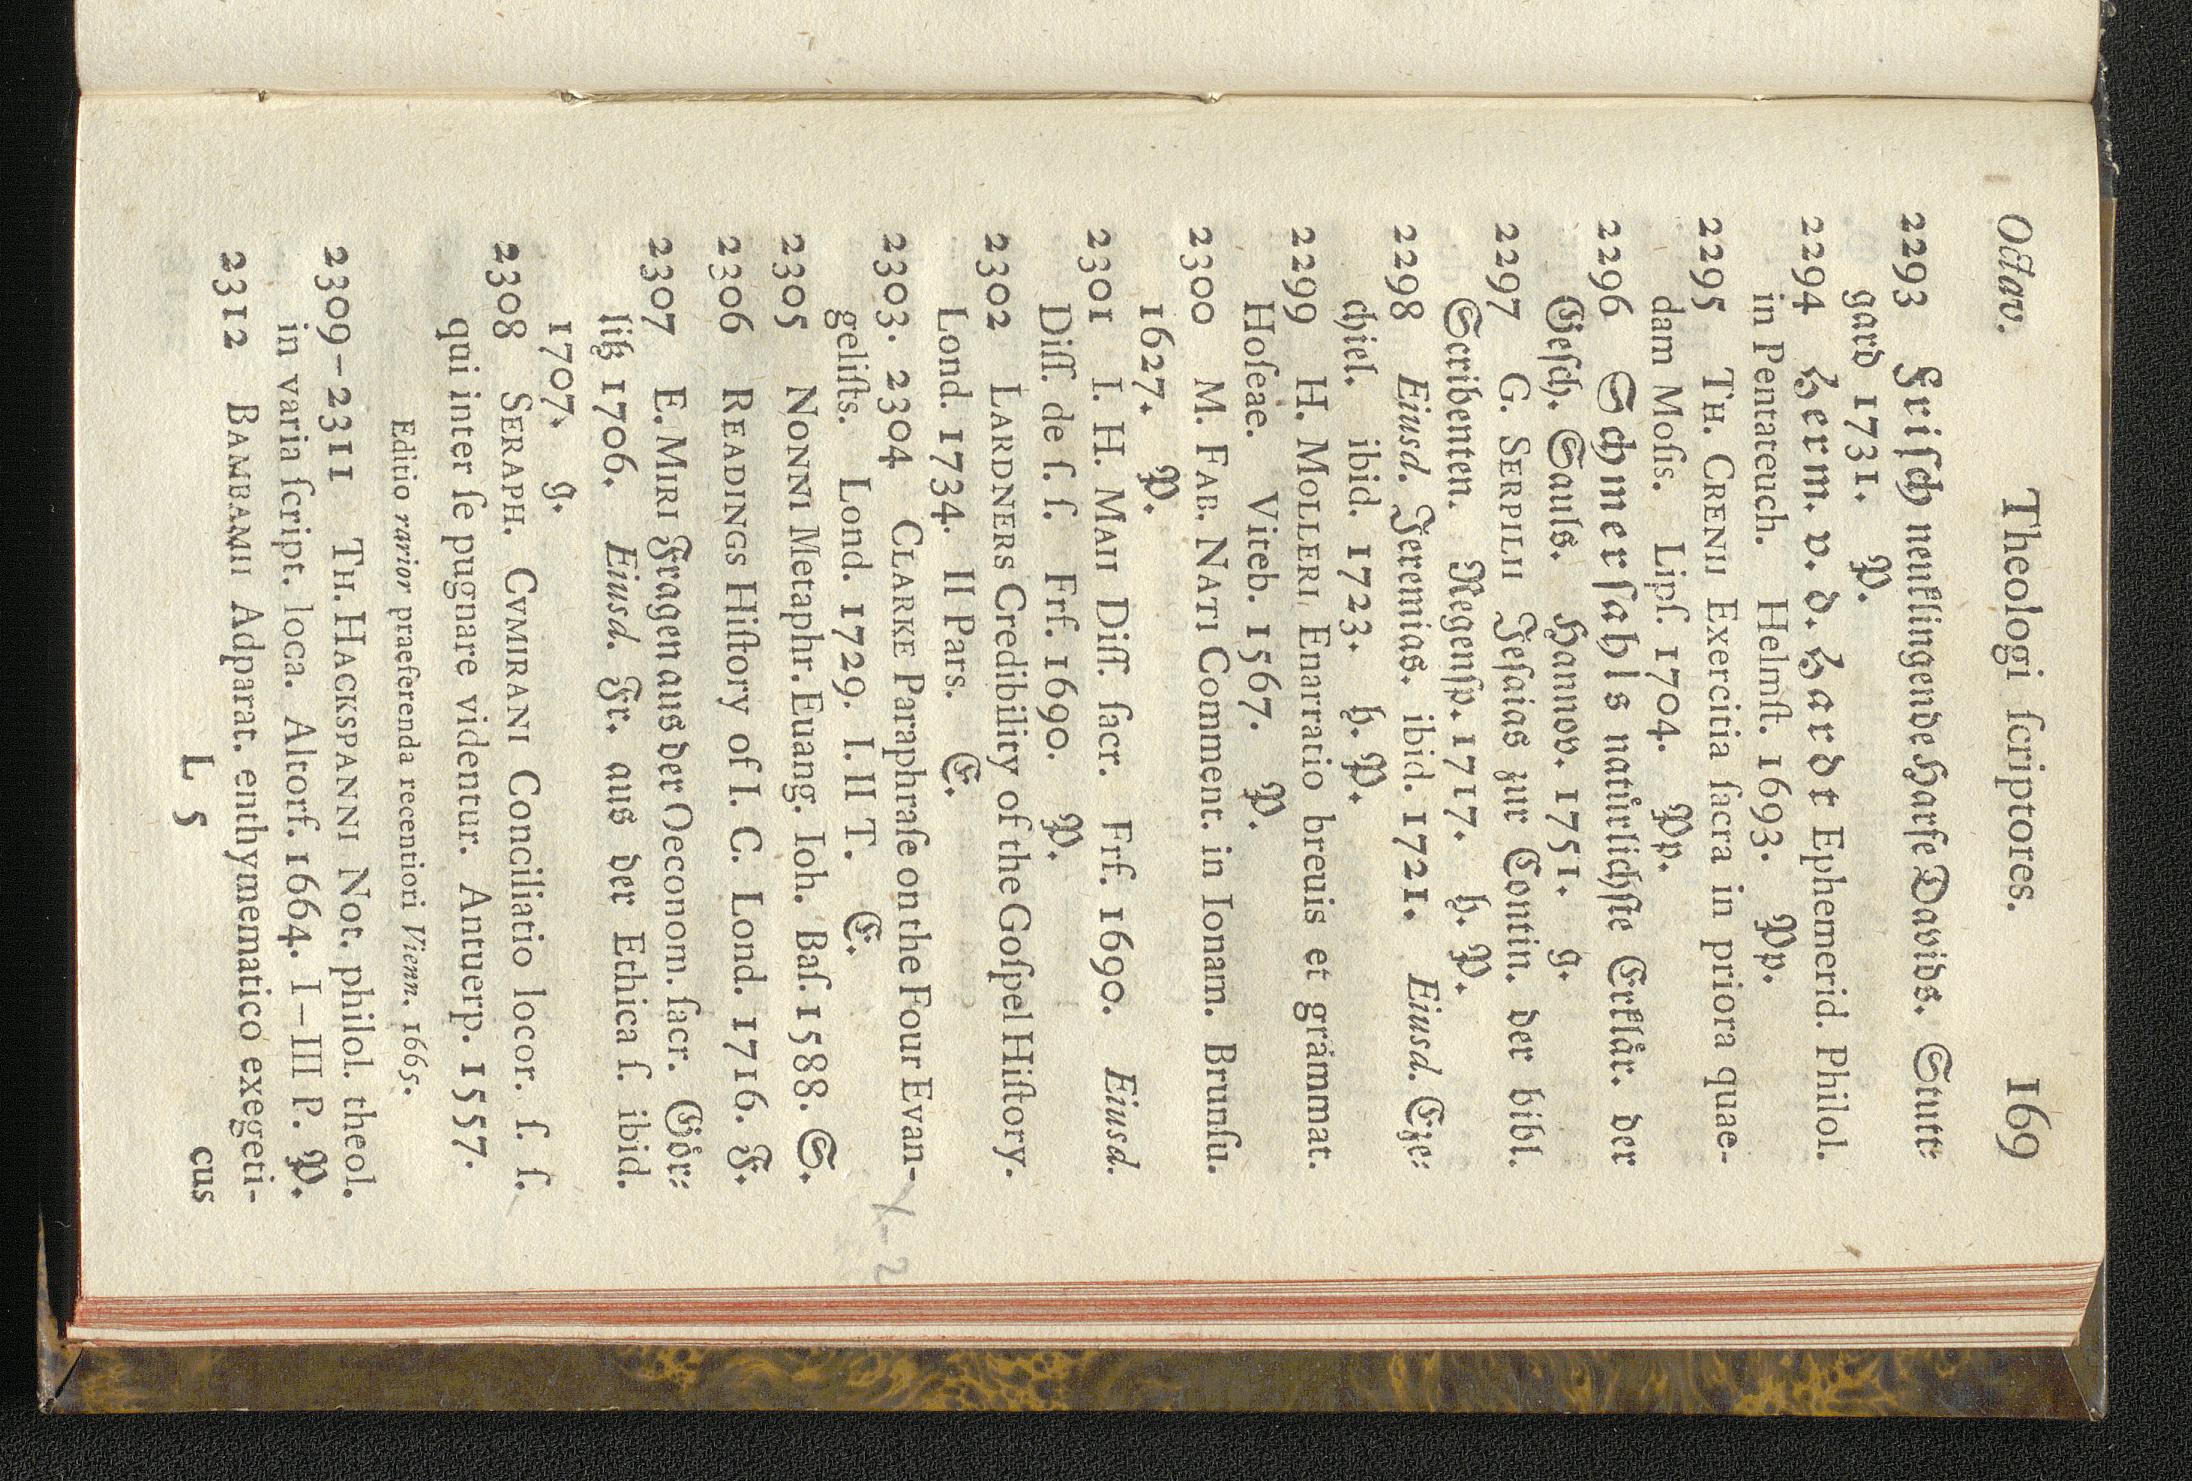 Octav. Theologi ſcriptores. 169
2293 Friſch neuklingende Harfe Davids. Stutt-
gard 1731. P.
2294 Herm. v. d. Hardt Ephemerid. Philol.
in Pentateuch. Helmſt. 1693. Pp.
2295 TH. CRENII Exercitia ſacra in priora quae-
dam Moſis. Lipſ. 1704. Pp.
2296 Schmerſahls natürlichſte Erklär. der
Geſch. Sauls. Hannov. 1751. g.
2297 G. SERPILII Jeſaias zur Contin. der bibl.
Scribenten. Regenſp. 1717. h. P.
2298 Eiusd. Jeremias. ibid. 1721. Eiusd. Eze-
chiel. ibid. 1723. h. P.
2299 H. MOLLERI Enarratio breuis et grammat.
Hoſeae. Viteb. 1567. P.
2300 M. FAB. NATI Comment. in Ionam. Brunſu.
1627. P.
2301 I. H. MAII Diſſ. ſacr. Frf. 1690. Eiusd.
Diſſ. de ſ. ſ. Frf. 1690. P.
2302 LARDNERS Credibility of the Goſpel Hiſtory.
Lond. 1734. II Pars. E.
2303. 2304 CLARKE Paraphraſe on the Four Evan-
geliſts. Lond. 1729. I. II T. E.
2305 NONNI Metaphr. Euang. Ioh. Baſ. 1588. S.
2306 READINGS Hiſtory of I. C. Lond. 1716. F.
2307 E. MIRI Fragen aus der Oeconom. ſacr. Gör-
litz 1706. Eiusd. Fr. aus der Ethica ſ. ibid.
1707. g.
2308 SERAPH. CVMIRANI Conciliatio locor. ſ. ſ.
qui inter ſe pugnare videntur. Antuerp. 1557.
Editio rarior praeferenda recentiori Vienn. 1665.
2309-2311 TH. HACKSPANNI Not. philol. theol.
in varia ſcript. loca. Altorf. 1664. I-III P. P.
2312 BAMBAMII Adparat. enthymematico exegeti-
L 5 cus